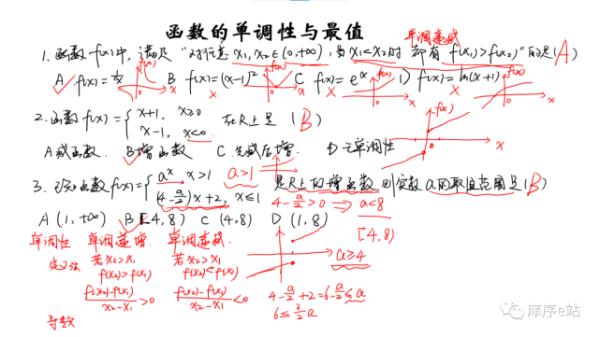 函数的单调性与最值
单调递减
1. 函数f(x)中，满足“对任意x₁,x₂∈(0,+∞),当x₁<x₂时 都有 f(x₁)>f(x₂)”的是(A)
A f(x)=1/x B f(x)=(x-1)² C f(x)=eˣ D f(x)=ln(x+1)
2. 函数f(x)={x+1, x≥0 在R上是 (B)
x-1, x<0
A减函数. B增函数 C.先减后增. D无单调性
3. 函数f(x)={aˣ x>1 a>1 是R上的增函数 则实数a的取值范围是(B)
(4-a/2)x+2, x≤1 4-a/2>0 ⇒ a<8
A (1,+∞) B[4,8) C (4,8) D (1,8) [4,8)
单调性 单调递增 单调递减. a≥4
定义法 若x₂>x₁ 若x₂>x₁
f(x₂)>f(x₁) f(x₂)<f(x₁)
f(x₂)-f(x₁)/x₂-x₁>0 f(x₂)-f(x₁)/x₂-x₁<0 4-a/2+2=6-a/2≤a
6≤3/2a
导数
库序e站